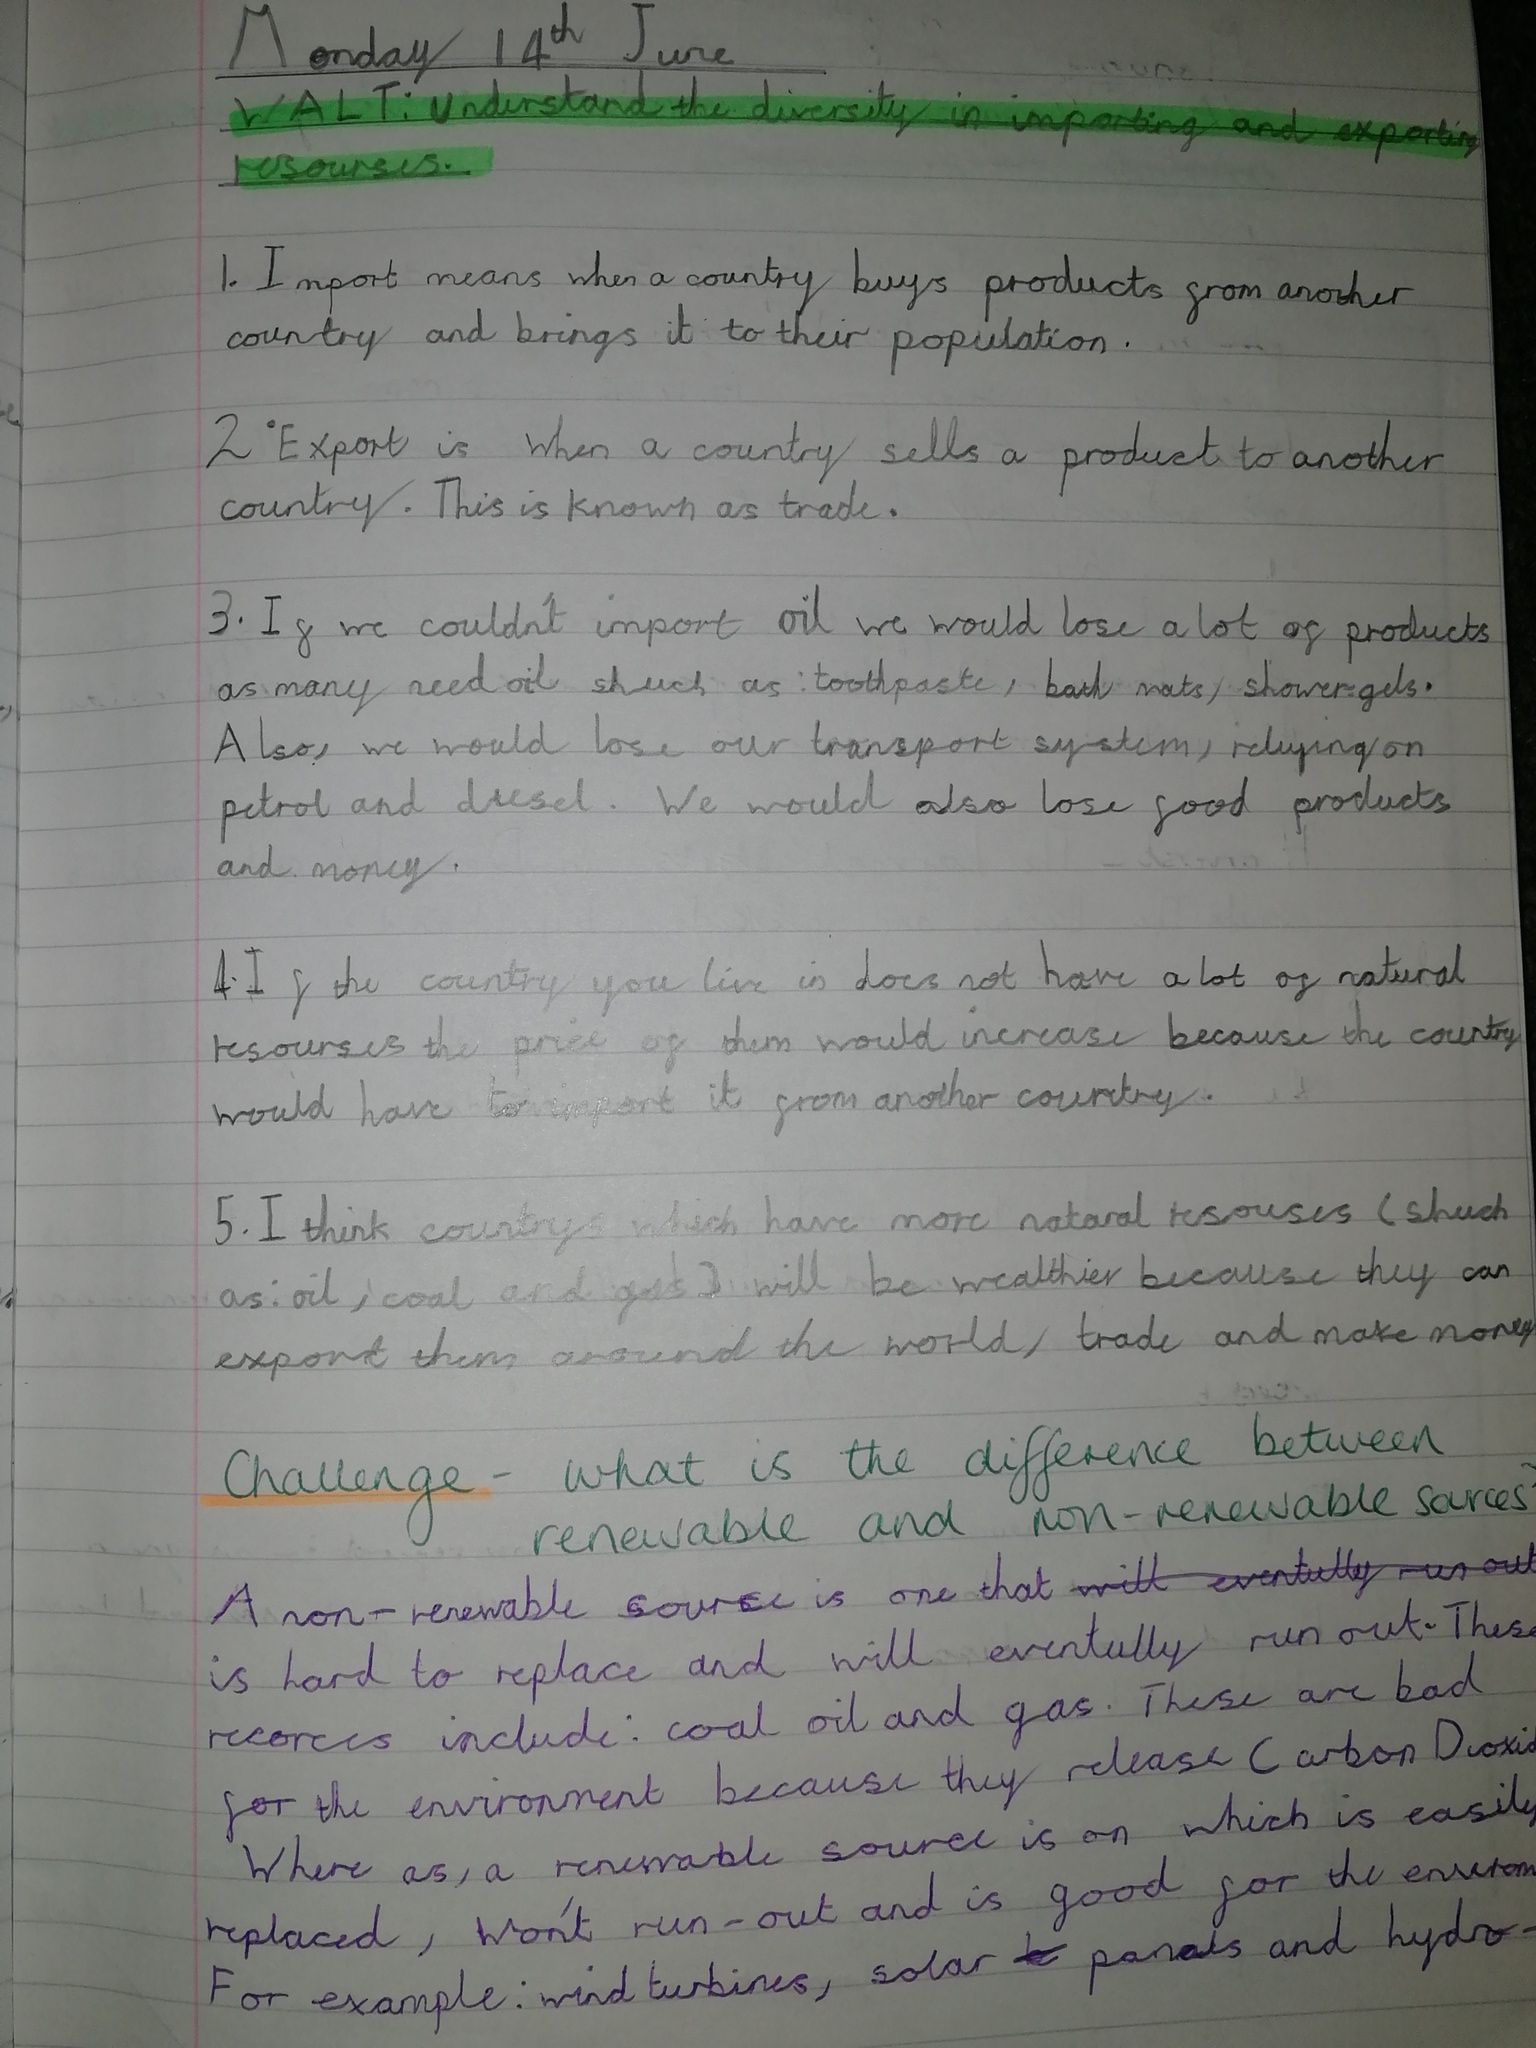 Monday 14th June
WALT: Understand the diversity in importing and exporting
resourses.
1. Import means when a country buys products from another
country and brings it to their population.
2. Export is when a country sells a product to another
country. This is known as trade.
3. If we couldn't import oil we would lose a lot of products
as many need oil shuch as: toothpaste, bath mats, shower-gels.
Also, we would lose our transport system, relying on
petrol and diesel. We would also lose good products
and money.
4. If the country you live in does not have a lot of natural
resourses the price of them would increase because the country
would have to import it from another country.
5. I think countrys which have more nataral resouses (shuch
as: oil, coal and gas) will be wealthier because they can
export them around the world, trade and make money
Challenge - what is the difference between
renewable and non-renewable sources?
A non-renewable sourse is one that will eventully run out
is hard to replace and will eventully run out. These
recorces include: coal oil and gas. These are bad
for the environment because they release Carbon Dioxid
Where as, a renewable source is on which is easily
replaced, won't run-out and is good for the environ
For example: wind turbines, solar panals and hydro-